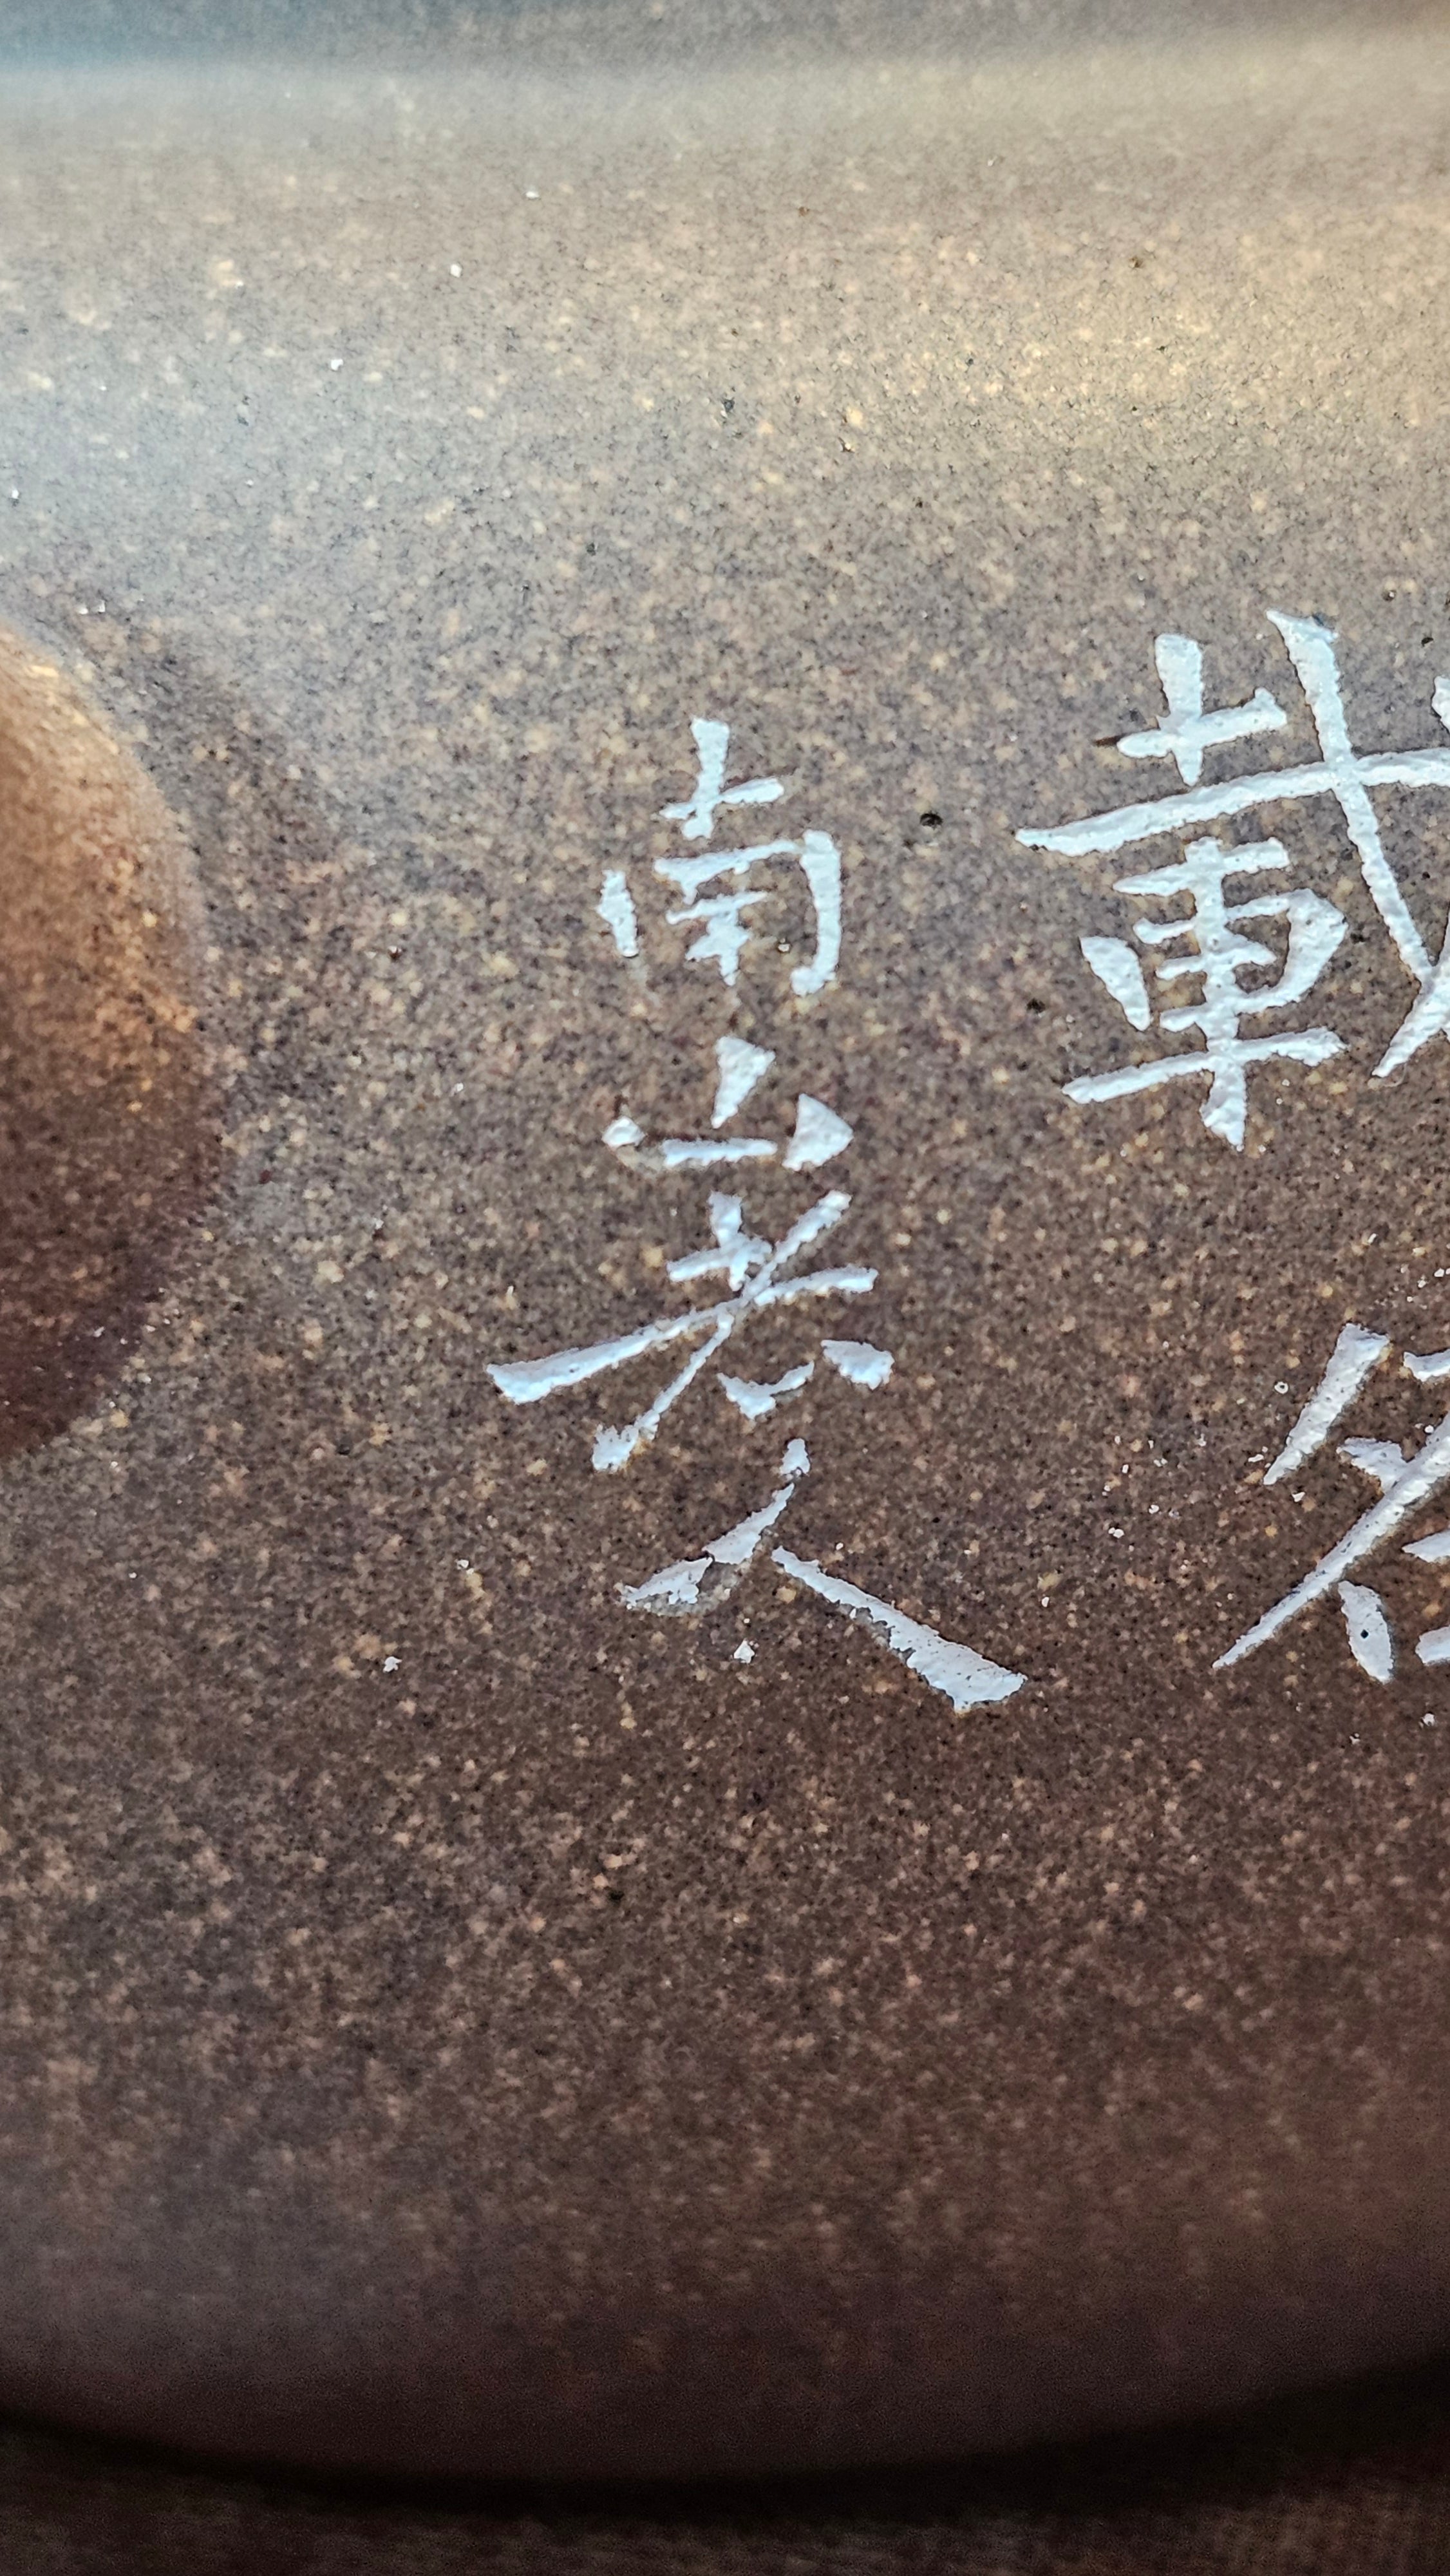 載
南山老人